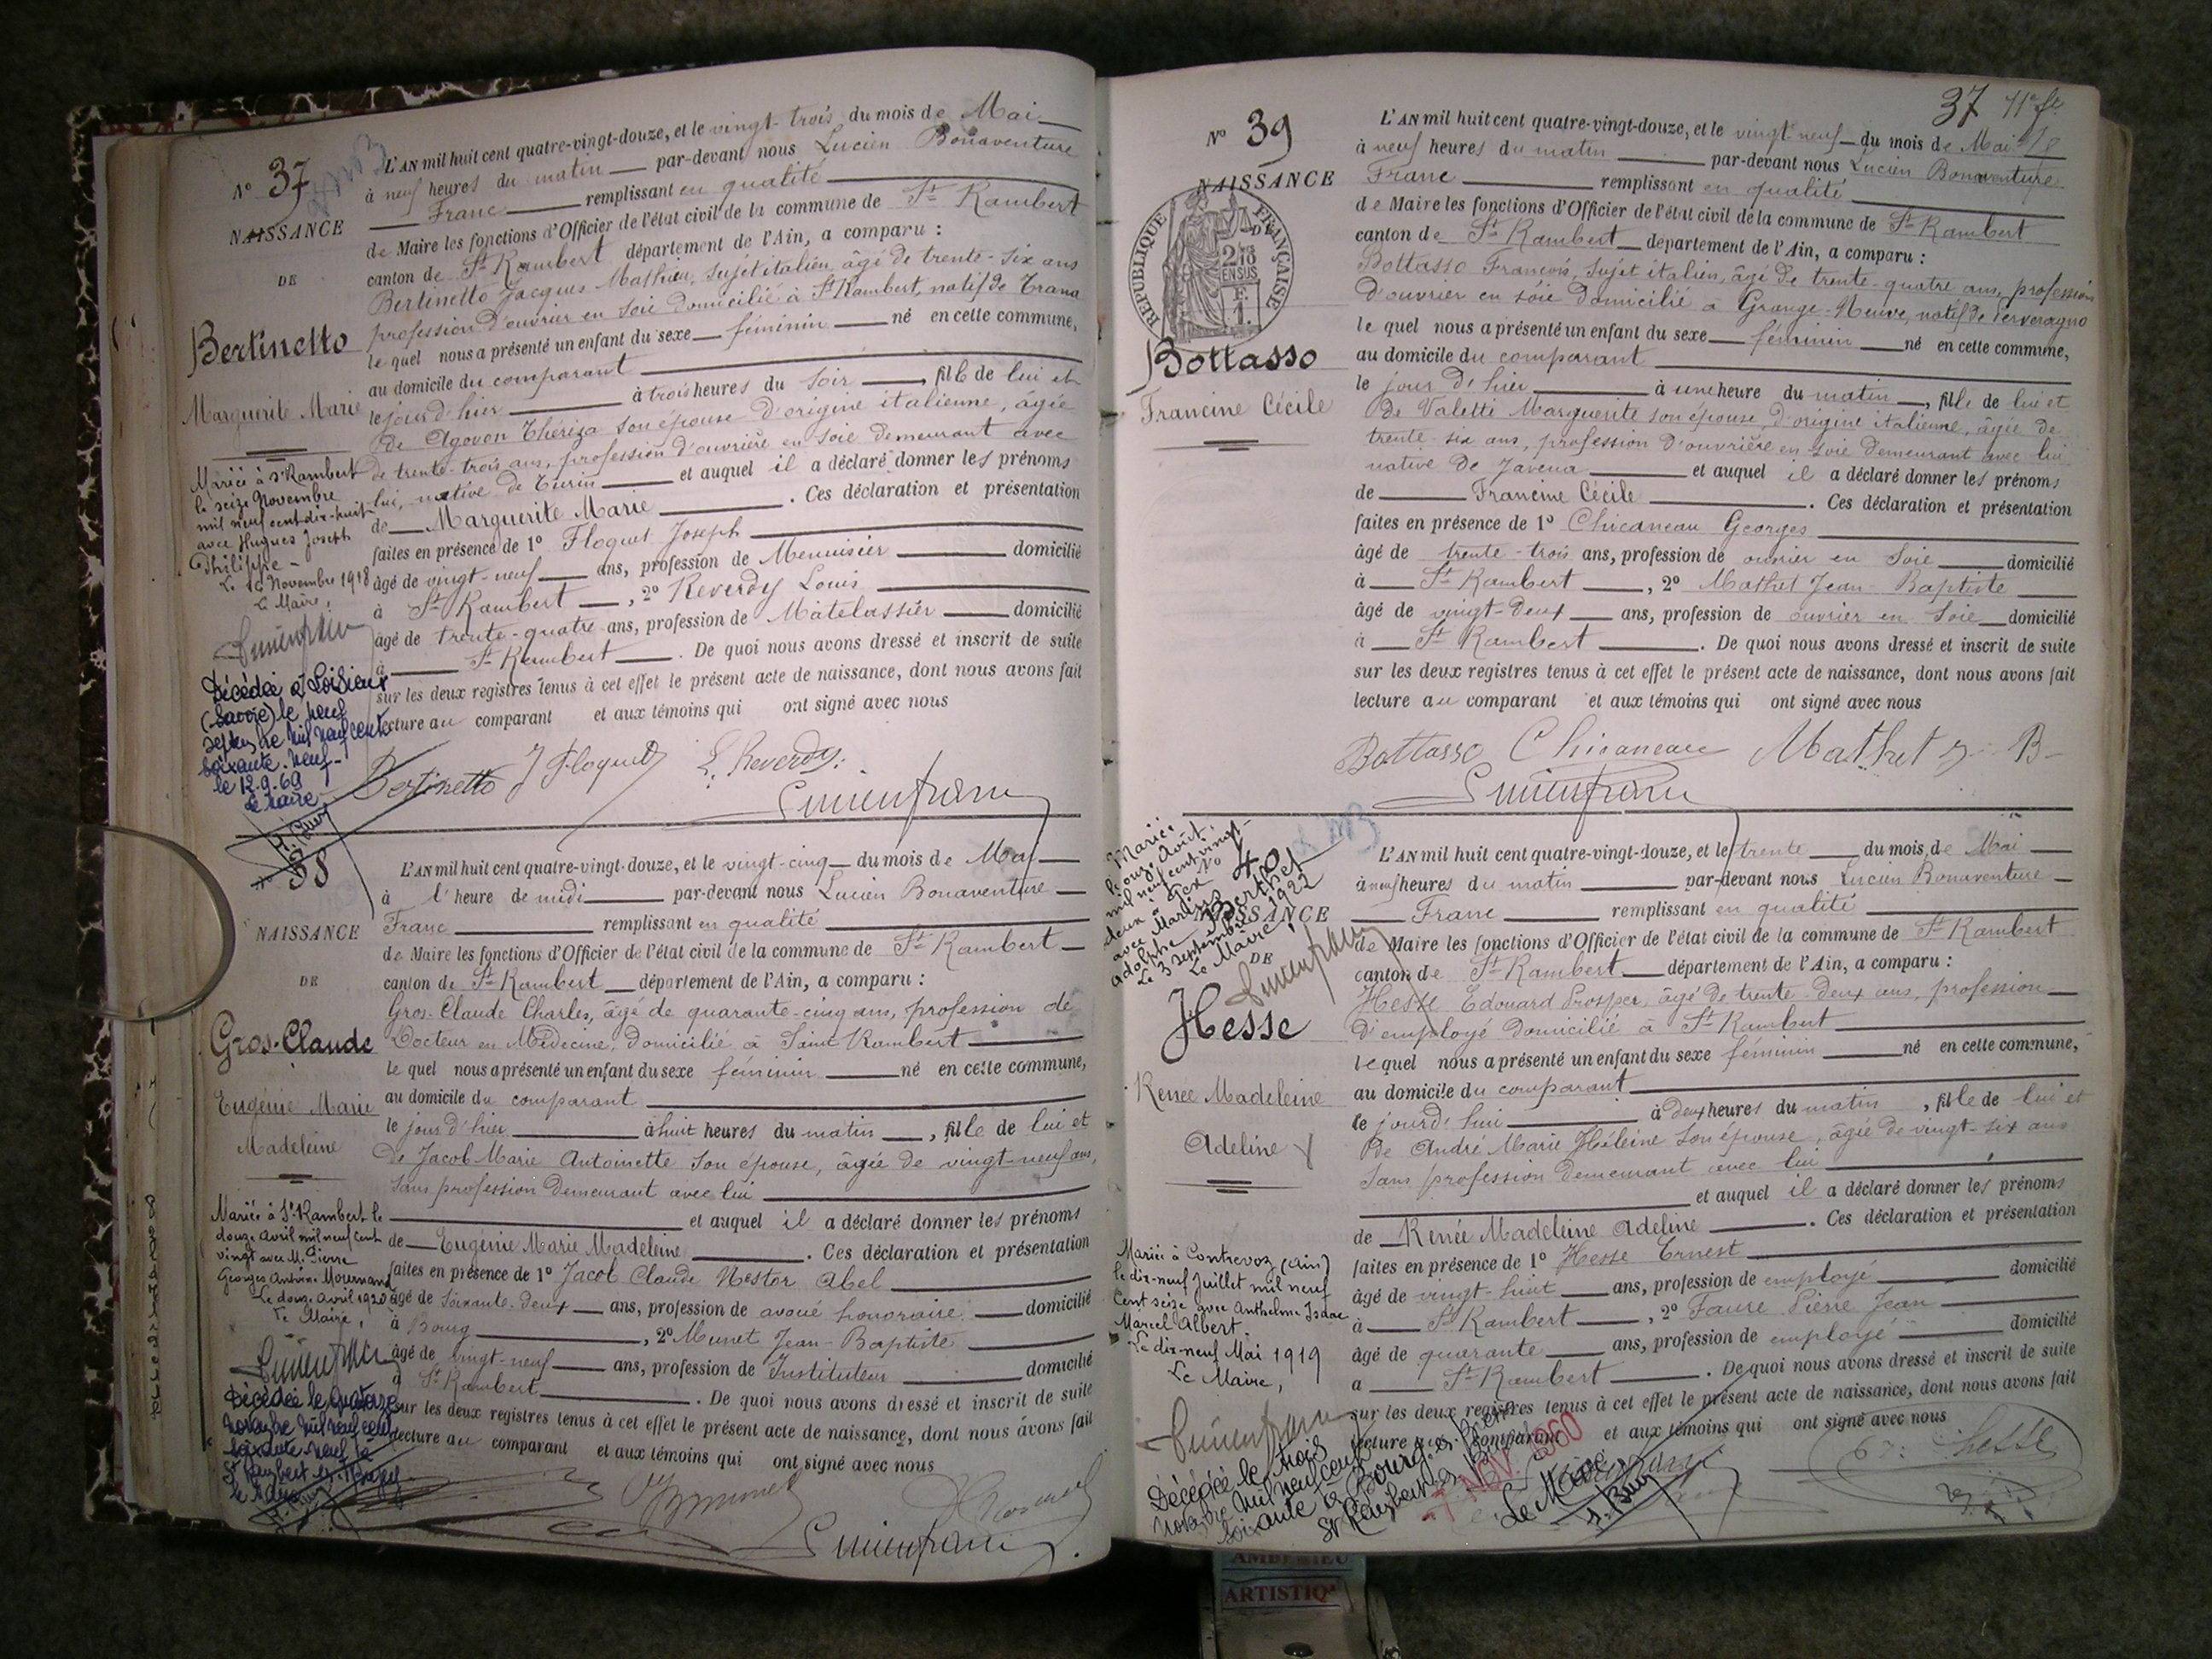 N° 37
NAISSANCE
DE
Bertinetto
Marguerite Marie
Mariée à St Rambert
le seize Novembre
mil neuf cent dix-huit
avec Hugues Joseph
Philippe
Le 16 Novembre 1918
Le Maire,
Décédée à Loisieux
(Savoie) le neuf
septembre mil neuf cent
soixante-neuf
le 12-9-69
Le Maire
L'AN mil huit cent quatre-vingt-douze, et le vingt-trois du mois de Mai
à neuf heures du matin par-devant nous Lucien Bonaventure
Franc remplissant en qualité
de Maire les fonctions d'Officier de l'état civil de la commune de St Rambert
canton de St Rambert département de l'Ain, a comparu :
Bertinetto Jacques Mathieu, sujet italien, âgé de trente-six ans
profession d'ouvrier en soie domicilié à St Rambert, natif de Trana
le quel nous a présenté un enfant du sexe féminin né en cette commune,
au domicile du comparant
le jour d'hier à trois heures du soir, fille de lui et
de Agovon Thérésa son épouse d'origine italienne, âgée
de trente-trois ans, profession d'ouvrière en soie demeurant avec
lui, native de Turin et auquel il a déclaré donner les prénoms
de Marguerite Marie. Ces déclaration et présentation
faites en présence de 1° Floquet Joseph
âgé de vingt-neuf ans, profession de Menuisier domicilié
à St Rambert, 2° Reverdy Louis
âgé de trente-quatre ans, profession de Matelassier domicilié
à St Rambert. De quoi nous avons dressé et inscrit de suite
sur les deux registres tenus à cet effet le présent acte de naissance, dont nous avons fait
lecture au comparant et aux témoins qui ont signé avec nous
Bertinetto J Floquet L. Reverdy
N° 38
NAISSANCE
DE
Gros-Claude
Eugénie Marie
Madeleine
Mariée à St Rambert le
douze avril mil neuf cent
vingt avec M. Pierre
Georges Antoine
Le douze avril 1920
Le Maire,
Décédée le quatorze
novembre mil neuf cent
soixante-neuf à
St Rambert
le Maire
L'AN mil huit cent quatre-vingt-douze, et le vingt-cinq du mois de Mai
à l'heure de midi par-devant nous Lucien Bonaventure
Franc remplissant en qualité
de Maire les fonctions d'Officier de l'état civil de la commune de St Rambert
canton de St Rambert département de l'Ain, a comparu :
Gros-Claude Charles, âgé de quarante-cinq ans, profession de
Docteur en Médecine, domicilié à Saint Rambert
le quel nous a présenté un enfant du sexe féminin né en cette commune,
au domicile du comparant
le jour d'hier à huit heures du matin, fille de lui et
de Jacob Marie Antoinette son épouse, âgée de vingt-neuf ans,
sans profession demeurant avec lui
et auquel il a déclaré donner les prénoms
de Eugénie Marie Madeleine. Ces déclaration et présentation
faites en présence de 1° Jacob Claude Nestor Abel
âgé de soixante-deux ans, profession de avoué honoraire domicilié
à Bourg, 2° Munet Jean-Baptiste
âgé de vingt-neuf ans, profession de Instituteur domicilié
à St Rambert. De quoi nous avons dressé et inscrit de suite
sur les deux registres tenus à cet effet le présent acte de naissance, dont nous avons fait
lecture au comparant et aux témoins qui ont signé avec nous
37
N° 39
NAISSANCE
REPUBLIQUE FRANÇAISE
Bottasso
Francine Cécile
L'AN mil huit cent quatre-vingt-douze, et le vingt-neuf du mois de Mai
à neuf heures du matin par-devant nous Lucien Bonaventure
Franc remplissant en qualité
de Maire les fonctions d'Officier de l'état civil de la commune de St Rambert
canton de St Rambert département de l'Ain, a comparu :
Bottasso François, sujet italien, âgé de trente-quatre ans, profession
d'ouvrier en soie domicilié à Grange-Neuve, natif de
le quel nous a présenté un enfant du sexe féminin né en cette commune,
au domicile du comparant
le jour d'hier à une heure du matin, fille de lui et
de Valetti Marguerite son épouse, d'origine italienne, âgée de
trente-six ans, profession d'ouvrière en soie demeurant avec lui
native de et auquel il a déclaré donner les prénoms
de Francine Cécile. Ces déclaration et présentation
faites en présence de 1° Chicaneau Georges
âgé de trente-trois ans, profession de ouvrier en soie domicilié
à St Rambert, 2° Mathet Jean-Baptiste
âgé de vingt-deux ans, profession de ouvrier en soie domicilié
à St Rambert. De quoi nous avons dressé et inscrit de suite
sur les deux registres tenus à cet effet le présent acte de naissance, dont nous avons fait
lecture au comparant et aux témoins qui ont signé avec nous
Bottasso Chicaneau Mathet J-B-
Mariée
le onze Août
mil neuf cent vingt-
deux à Gex
avec Marius Berthet
Adolphe
Le 3 septembre 1922
Le Maire,
N° 40
NAISSANCE
DE
Hesse
Renée Madeleine
Adeline
Mariée à Contrevoz (Ain)
le dix-neuf Juillet mil neuf
cent seize avec Anthelme Isaac
Marcel Albert.
Le dix-neuf Mai 1919
Le Maire,
Décédée le trois
novembre mil neuf cent
soixante à Bourg
St Rambert
7 NOV. 1960
Le Maire
L'AN mil huit cent quatre-vingt-douze, et le trente du mois de Mai
à neuf heures du matin par-devant nous Lucien Bonaventure
Franc remplissant en qualité
de Maire les fonctions d'Officier de l'état civil de la commune de St Rambert
canton de St Rambert département de l'Ain, a comparu :
Hesse Edouard Prosper, âgé de trente-deux ans, profession
d'employé domicilié à St Rambert
le quel nous a présenté un enfant du sexe féminin né en cette commune,
au domicile du comparant
le jour d'hui à deux heures du matin, fille de lui et
de André Marie Héleine son épouse, âgée de vingt-six ans
sans profession demeurant avec lui
et auquel il a déclaré donner les prénoms
de Renée Madeleine Adeline. Ces déclaration et présentation
faites en présence de 1° Hesse Ernest
âgé de vingt-huit ans, profession de employé domicilié
à St Rambert, 2° Faure Pierre Jean
âgé de quarante ans, profession de employé domicilié
à St Rambert. De quoi nous avons dressé et inscrit de suite
sur les deux registres tenus à cet effet le présent acte de naissance, dont nous avons fait
lecture au comparant et aux témoins qui ont signé avec nous
Hesse
ARTISTIQ